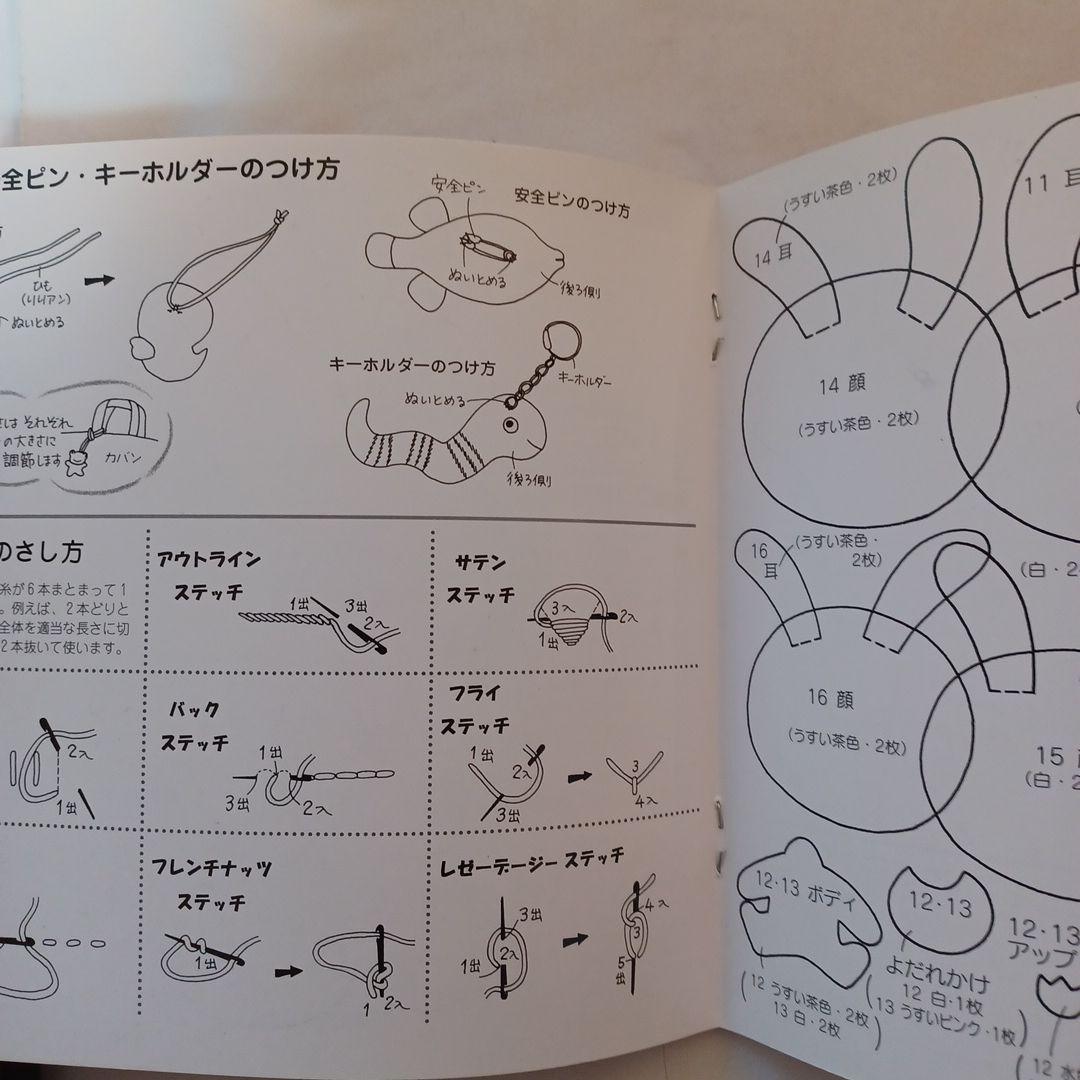 全ピン・キーホルダーのつけ方
ひも
(リリアン)
ぬいとめる
それぞれ
の大きさに
調節します
カバン
安全ピン
安全ピンのつけ方
ぬいとめる
後ろ側
キーホルダーのつけ方
ぬいとめる
キーホルダー
後ろ側
のさし方
糸が6本まとまって1
。例えば、2本どりと
全体を適当な長さに切
2本抜いて使います。
アウトライン
ステッチ
1出
3出
2入
サテン
ステッチ
3入
2入
1出
2入
1出
バック
ステッチ
1出
3出
2入
フライ
ステッチ
1出
2入
3出
3
4入
フレンチナッツ
ステッチ
1出
1
2入
レゼーデージーステッチ
3出
2入
1出
4入
3
5出
(うすい茶色・2枚)
14 耳
11 耳
14 顔
(うすい茶色・2枚)
16 耳
(うすい茶色・2枚)
(白・2
16 顔
(うすい茶色・2枚)
15
(白・2
12・13 ボディ
(12 うすい茶色・2枚
13 白・2枚)
12・13
よだれかけ
(12 白・1枚
13 うすいピンク・1枚)
12・13
アップ
(12